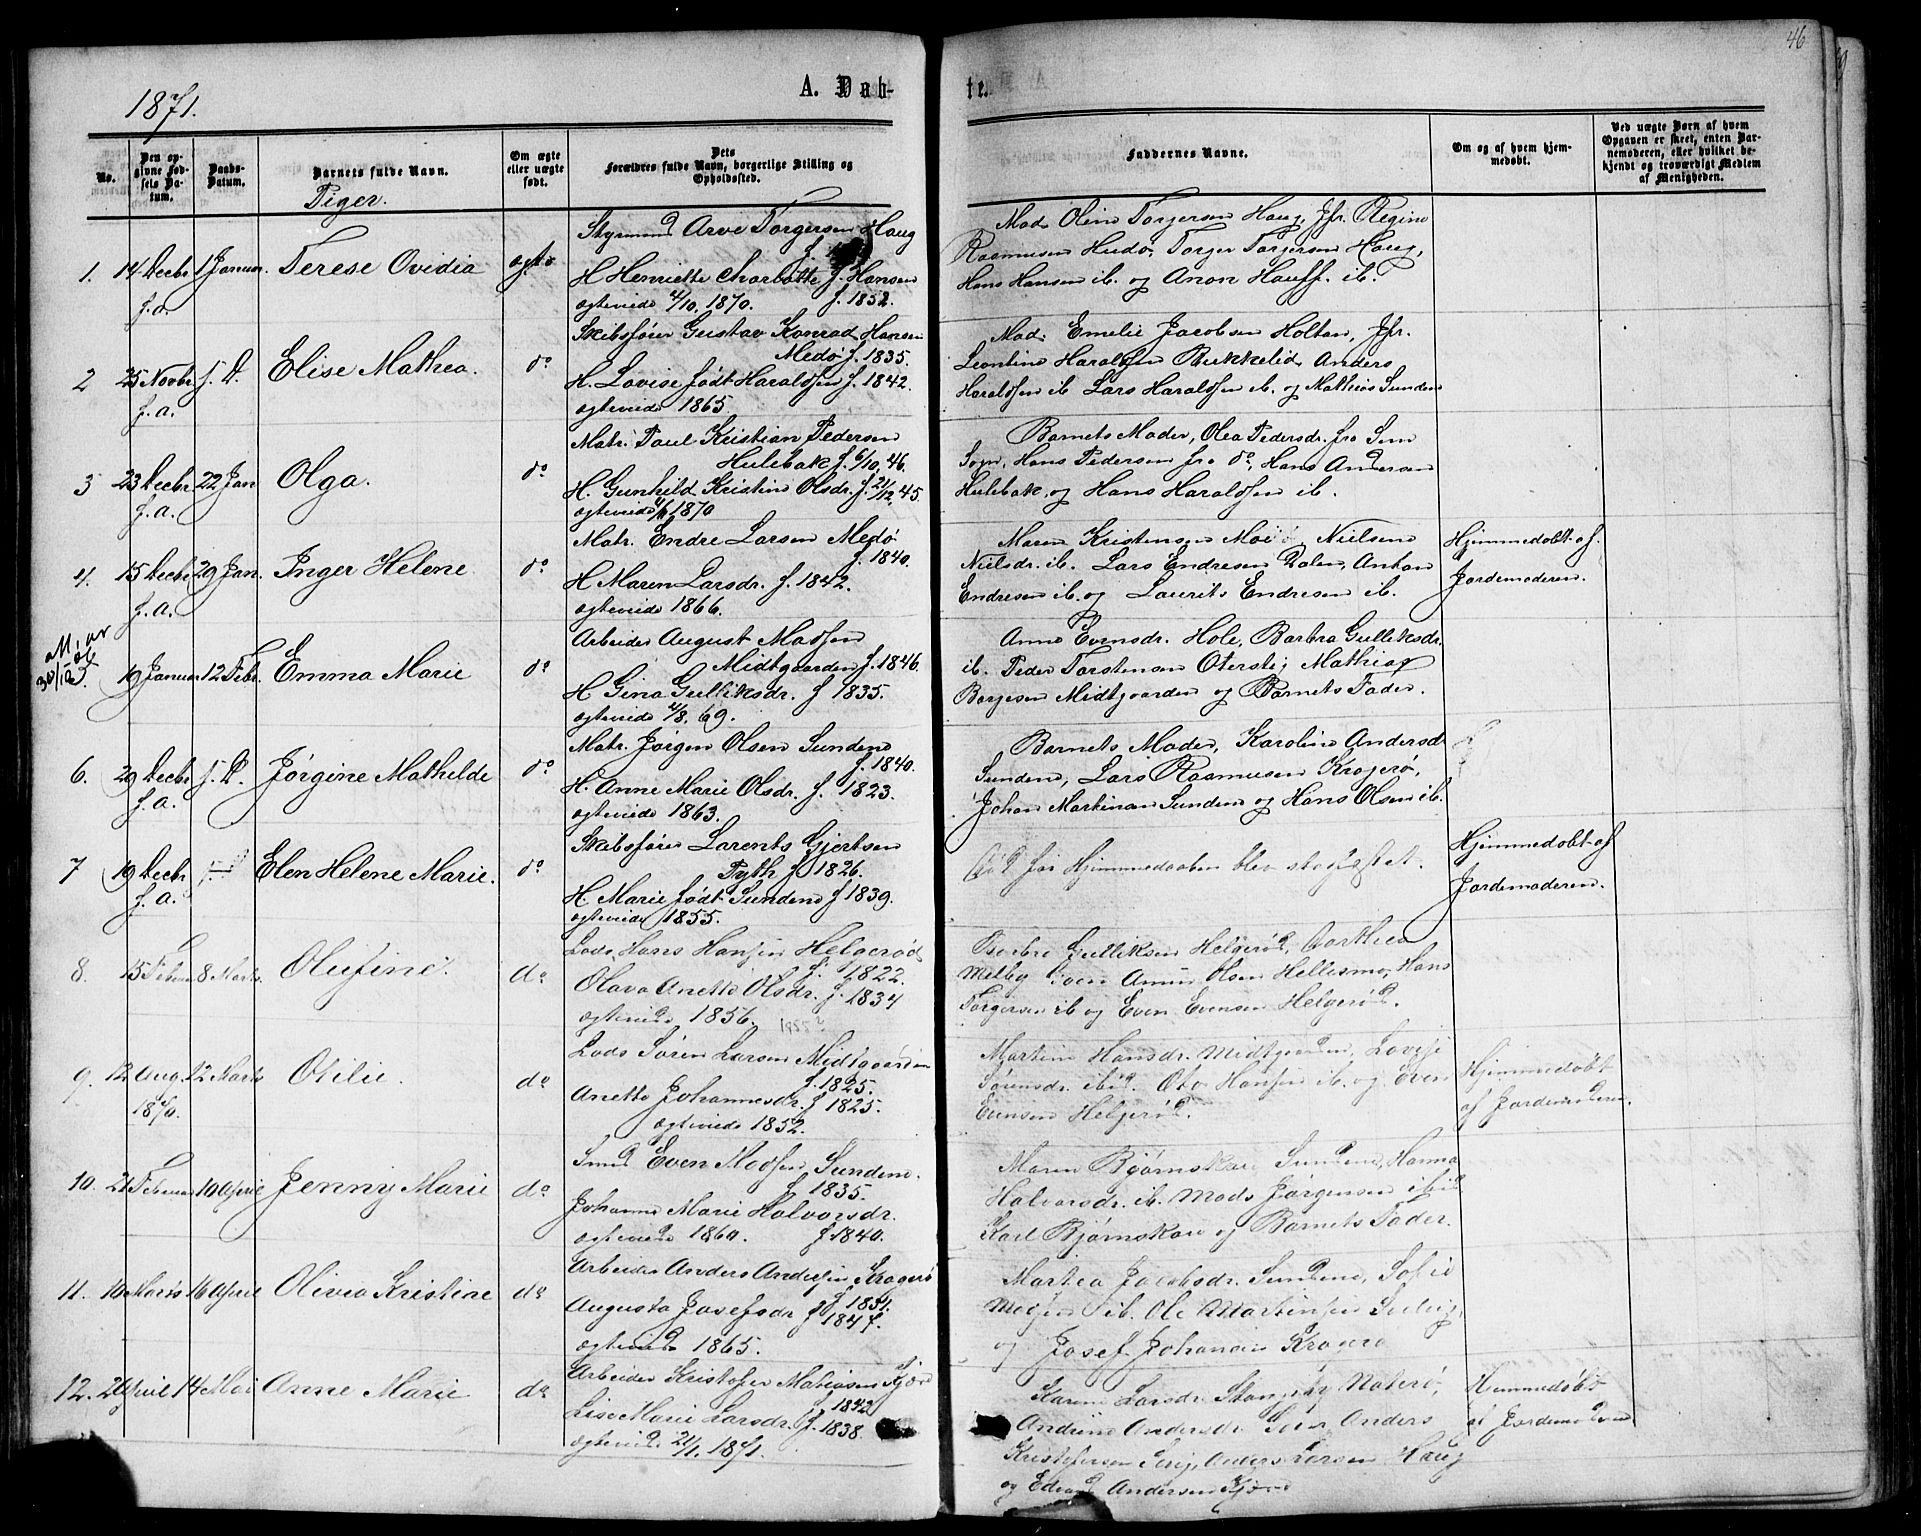 46
1871.
A. Døb-
te.
No.
Den opgivne Fødsels Datum.
Daabs-Datum.
Barnets fulde Navn.
Piger.
Om ægte eller uægte født.
Dets Forældres fulde Navn, borgerlige Stilling og Opholdssted.
Faddernes Navne.
Om og af hvem hjemmedøbt.
Ved uægte Børn af hvem Opgaven er skeet, enten Barnemoderen, eller hvilket bekjendt og troværdigt Medlem af Menigheden.
1. 14 Decbr f.a. 1 Januar. Terese Ovidia ægte
Styrmand Arve Torgersen Haug
H Henriette Charlotte f. Hansen
ægteviede 4/10. 1870. f. 1852.
Mad. Oline Torgersen Haug, Jfr. Regine
Rasmussen Hudø, Torger Torgersen Haug,
Hans Hansen ib. og Anon Hauff. ib.
2 25 Novbr f.a. s. D. Elise Mathea. do
Skibsfører Gustav Konrad Hansen
Medø f. 1835.
H. Lovise født Haraldsen f. 1842.
ægteviede 1865
Mad. Emelie Jacobsen Holtan, Jfr.
Leontine Haraldsen Bukkelid, Anders
Haraldsen ib. Lars Haraldsen ib. og Mathias Sundene
3 23 Decbr f.a. 22 Jan Olga. do
Matr. Paul Kristian Pedersen
Hulebak f. 6/10. 46.
H. Gunhild Kristine Olsdr. f. 21/12. 45.
ægteviede 1870
Barnets Moder, Olea Pedersdr. fra Sem
Sogn, Hans Pedersen fra do, Hans Andersen
Hulebak og Hans Haraldsen ib.
4. 15 Decbr f.a. 29 Jan. Inger Helene do
Matr. Endre Larsen Medø
f. 1840.
H Maren Larsdr. f. 1842.
ægteviede 1866.
Maren Kristensen Nielsine
Nielsdr. ib. Lars Endresen Dalen, Anton
Endresen ib. og Laurits Endresen ib.
Hjemmedøbt af
Jordemoderen.
5. 19 Januar 12 Febr. Emma Marie do
Arbeider August Madsen
Midtgaarden f. 1846.
H Gina Gulliksdr. f 1835.
ægteviede 4/8. 69.
Anne Evensdr. Hole, Barbra Gulliksdr.
ib. Peder Torstensen Oterstig Mathias
Borgesen Midtgaarden og Barnets Fader.
6. 29 Decbr f.a. s. D. Jørgine Mathilde do
Matr. Jørgen Olsen Sundene
f. 1840.
H. Anne Marie Olsdr. f. 1823.
ægteviede 1863.
Barnets Moder, Karoline Andersd
Sundene, Lars Rasmussen Kragerø,
Johan Martinsen Sundene og Hans Olsen ib.
7 19 Decbr f.a. Elen Helene Marie. do
Skibsfører Lorents Gjertsen
Pyth f 1826.
H. Marie født Sundene f 1839.
ægteviede 1855.
Død før Hjemmedaaben blev stadfæstet.
Hjemmedøbt af
Jordemoderen.
8. 15 Februar 8 Marts Olufine. do
Lods Hans Hansen Helgerød
f. 1822.
Olava Anette Olsdr. f. 1834
ægteviede 1856. 1955?
Barbro Gulliksen Helgerød, Dorthea
Melby Sven Amund Olsen Hellesmo, Hans
Torgersen ib og Even Evensen Helgerød.
9. 12 Aug. 1870. 12 Marts Otilie. do
Lods Sören Larsen Midtgaarden
f. 1825.
Anette Johannesdr. f 1825.
ægteviede 1852.
Martine Hansdr. Midtgaarden, Lovise
Sørensdr. ibid. Oto Hansen ib. og Even
Evensen Helgerød.
Hjemmedøbt
af Jordemoderen.
10. 21 Februar 10 April Jenny Marie do
Smed Even Madsen Sundene.
f 1835.
Johanne Marie Halvorsdr.
ægteviede 1860. f 1840.
Maren Bjørnskau Sundene, Hanna
Halvorsdr. ib. Mads Jørgensen ibid
Karl Bjørnskau og Barnets Fader.
11. 10 Marts 16 April Olivia Kristine do
Arbeider Anders Andersen Kragerø
f 1831.
Augusta Josefsdr f 1847.
ægteviede 1865.
Martea Jacobsdr. Sundene, Sofie
Madsen ib. Ole Martinsen
og Josef Johansen Kragerø
12. 2 April 14 Mai Anne Marie do
Arbeider Kristofer Matiasen Kjær
f 1842
Lise Marie Larsdr. f. 1838
ægteviede 21/1. 1871.
Karen Larsdr. Stangeby Nøterø,
Andrine Andersdr. Anders
Kristofersen Anders Larsen Haug
og Edvard Andersen Kjær
Hjemmedøbt
af Jordemoderen